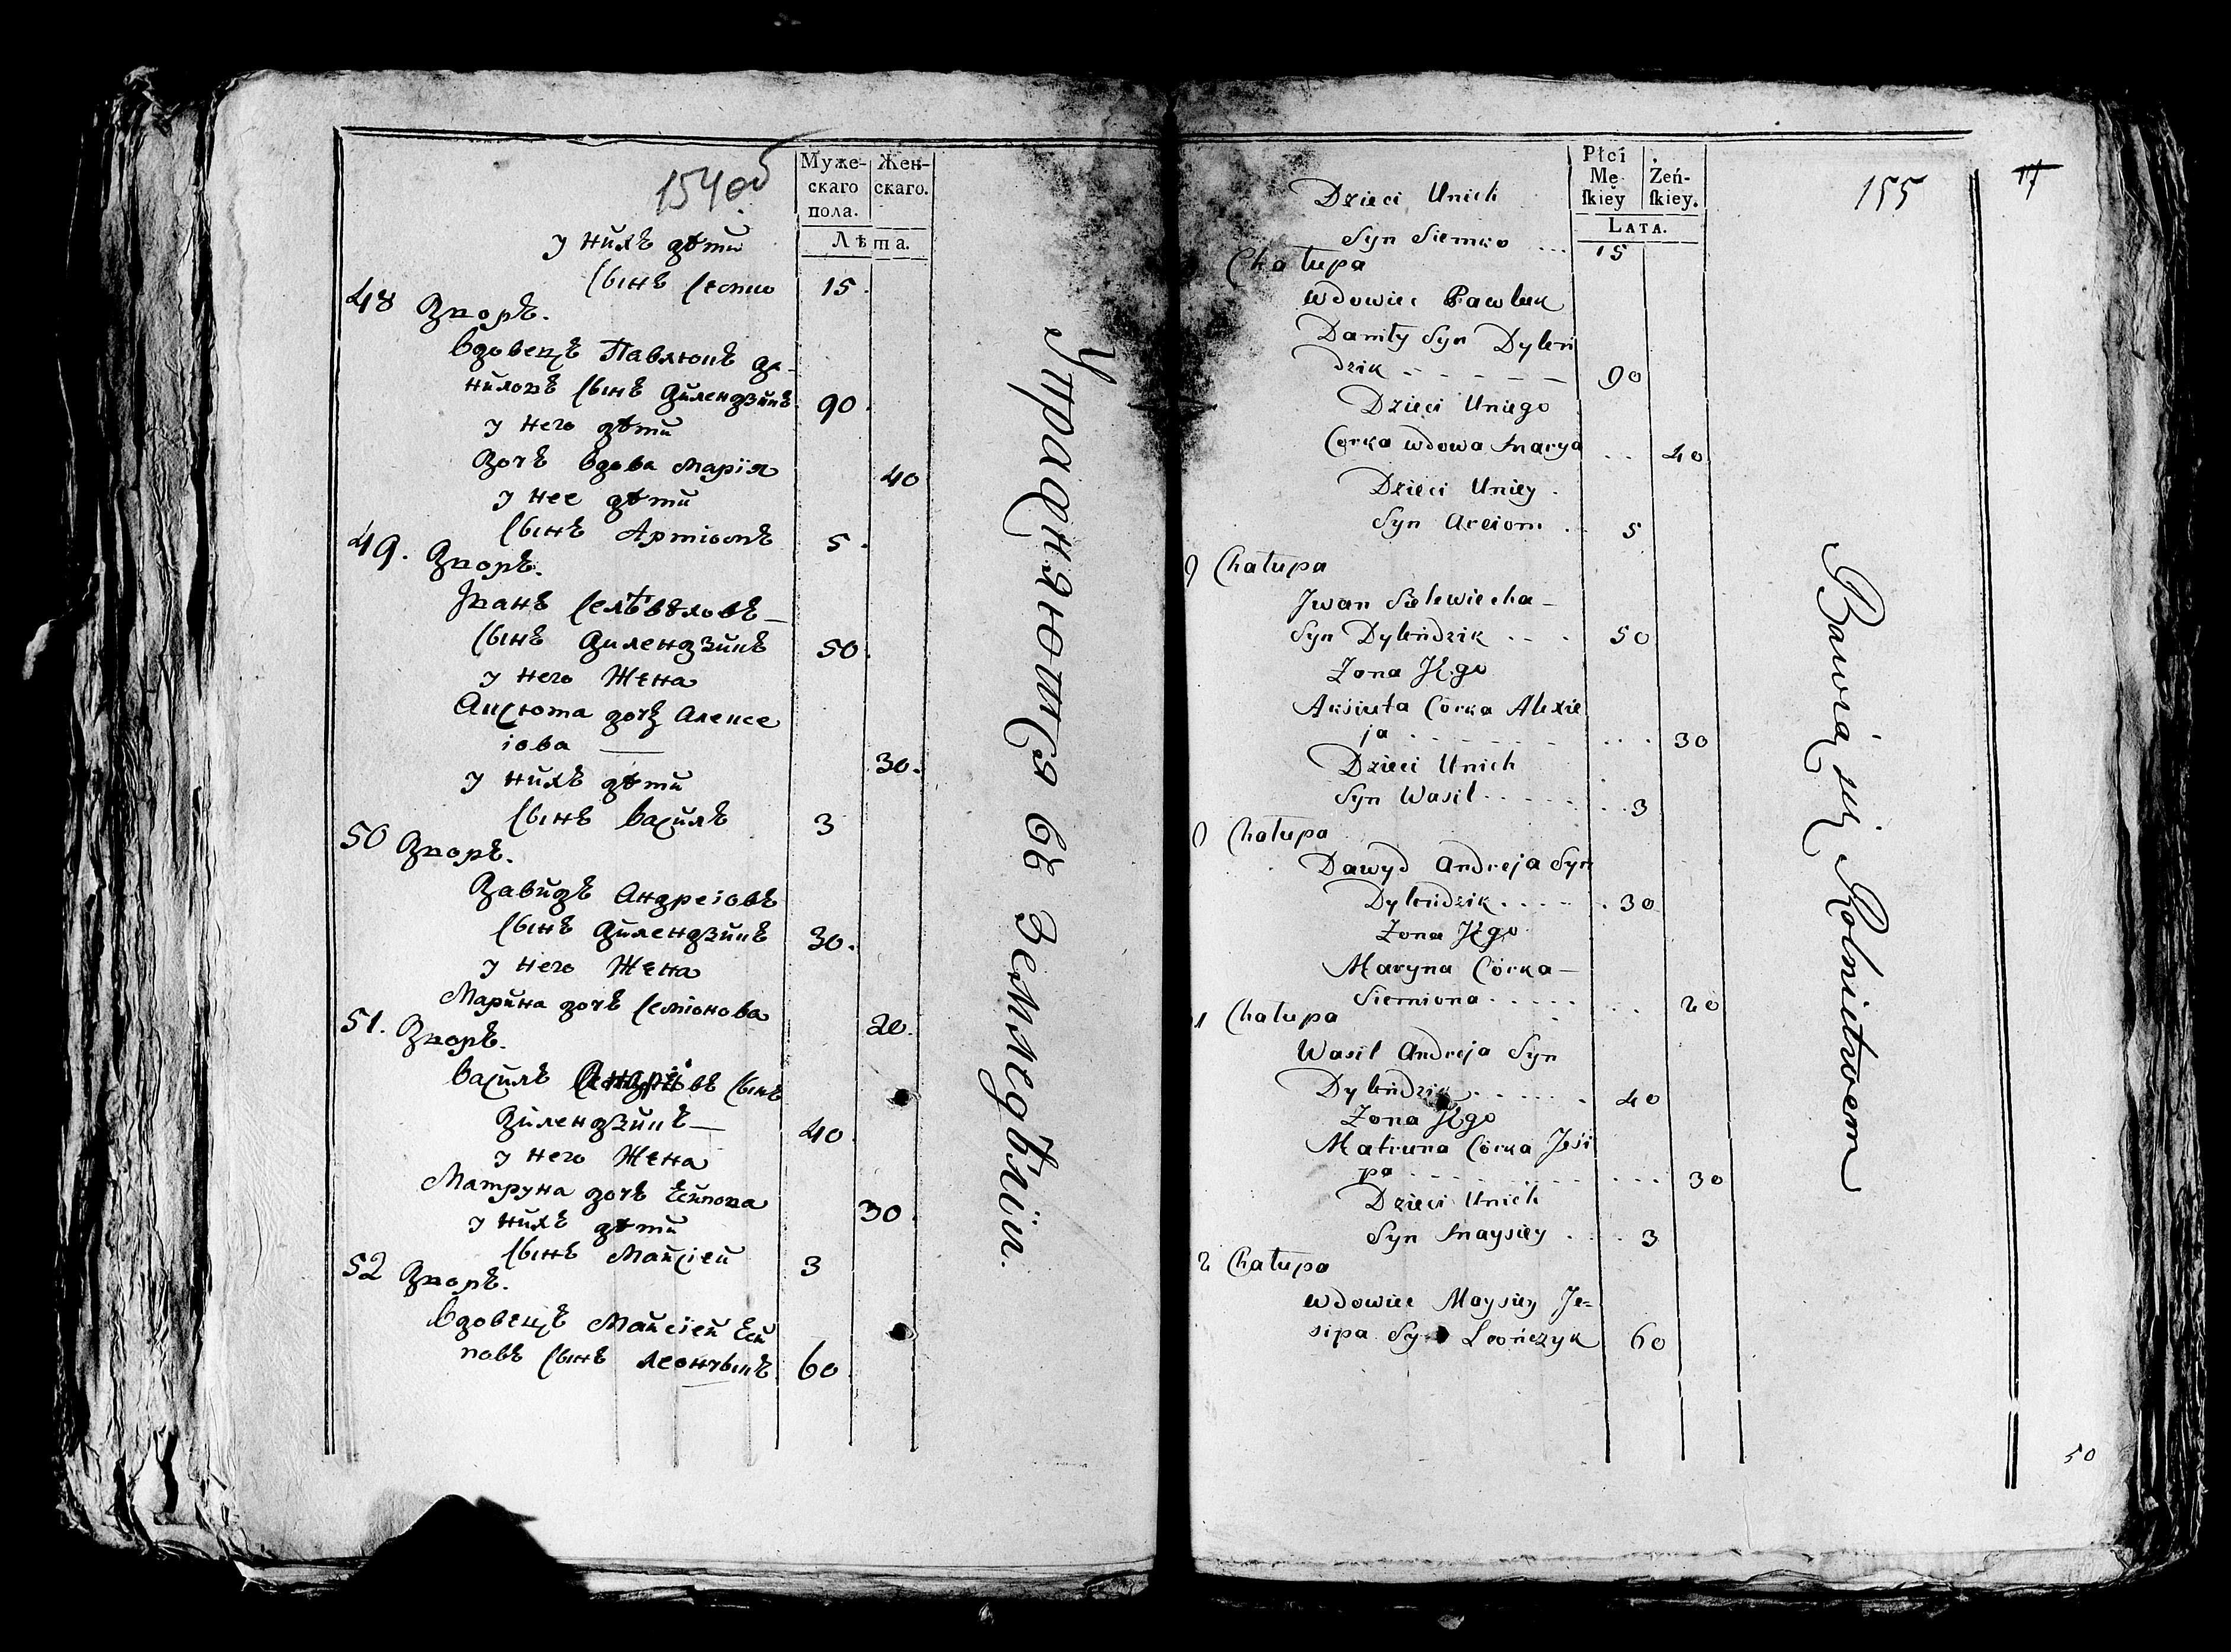 154об
Муже-
скаго
пола.
Жен-
скаго.
Лѣта.
у нихъ дѣти
сынъ Семко 15.
48 Дворъ.
Вдовецъ Павлюкъ Да-
ниловъ сынъ Диленdзикъ 90.
у него дѣти
дочъ вдова Марія 40
у нее дѣти
сынъ Артіомъ 5.
49. Дворъ.
Иванъ
сынъ Дилендзикъ 50.
у него жена
Аксюта дочъ Алексе
іова 30.
у нихъ дѣти
сынъ Василъ 3
50 Дворъ.
Давидъ Андреіовъ
сынъ Дилендзикъ 30.
у него жена
Марина дочъ Семіонова 20.
51. Дворъ.
Василъ сынъ
Дилендзикъ 40.
у него жена
Матруна дочъ Есипова 30.
у нихъ дѣти
сынъ Майсіей 3
52 Дворъ.
Вдовецъ Майсіей Еси
повъ сынъ Леончыкъ 60
Упражняются въ Земледѣліи.
Płci
Mę
ſkiey
Żeń-
ſkiey.
LATA.
155
17
Dzieci Unich
Syn Siemko ... 15
Chałupa
Wdowiec Pawluk
Daniły Syn Dyleń
dzik - - - - - - 90
Dzieci Uniego
Corka wdowa Marya .. 40
Dzieci Uniey .
Syn Arciom . . 5
9 Chałupa
Jwan Sielewiecha -
Syn Dyleńdzik - - - . 50
Żona Jego
Aksiuta Córka Alexie
ja . . . . . . . . . 30
Dzieci Unich
Syn Wasil . . . . . . . 3
0 Chałupa
Dawyd Andreja Syn
Dyleńdzik . . . . . 30
Żona Jego
Maryna Córka -
Siemiona . . . . . . . 20
1 Chałupa
Wasil Andreja Syn
Dyleńdzik . . . . . . 40
Żona Jego
Matruna Córka Jesi
pa . . . . . . . . . . 30
Dzieci Unich
Syn Maysiey . . . 3
2 Chałupa
Wdowiec Maysiey Je=
sipa Syn Leończyk 60
Bawią się Rolnictwem
50